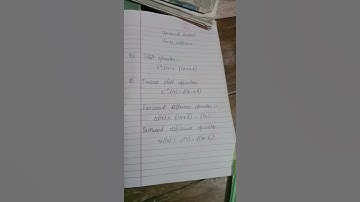 Finite difference
Shift operator
E f(x) = f(x+h)
Inverse shift operator
E⁻¹ f(x) = f(x-h)
Forward difference operator
Δf(x) = f(x+h) - f(x)
Backward difference operator
∇f(x) = f(x) - f(x-h)